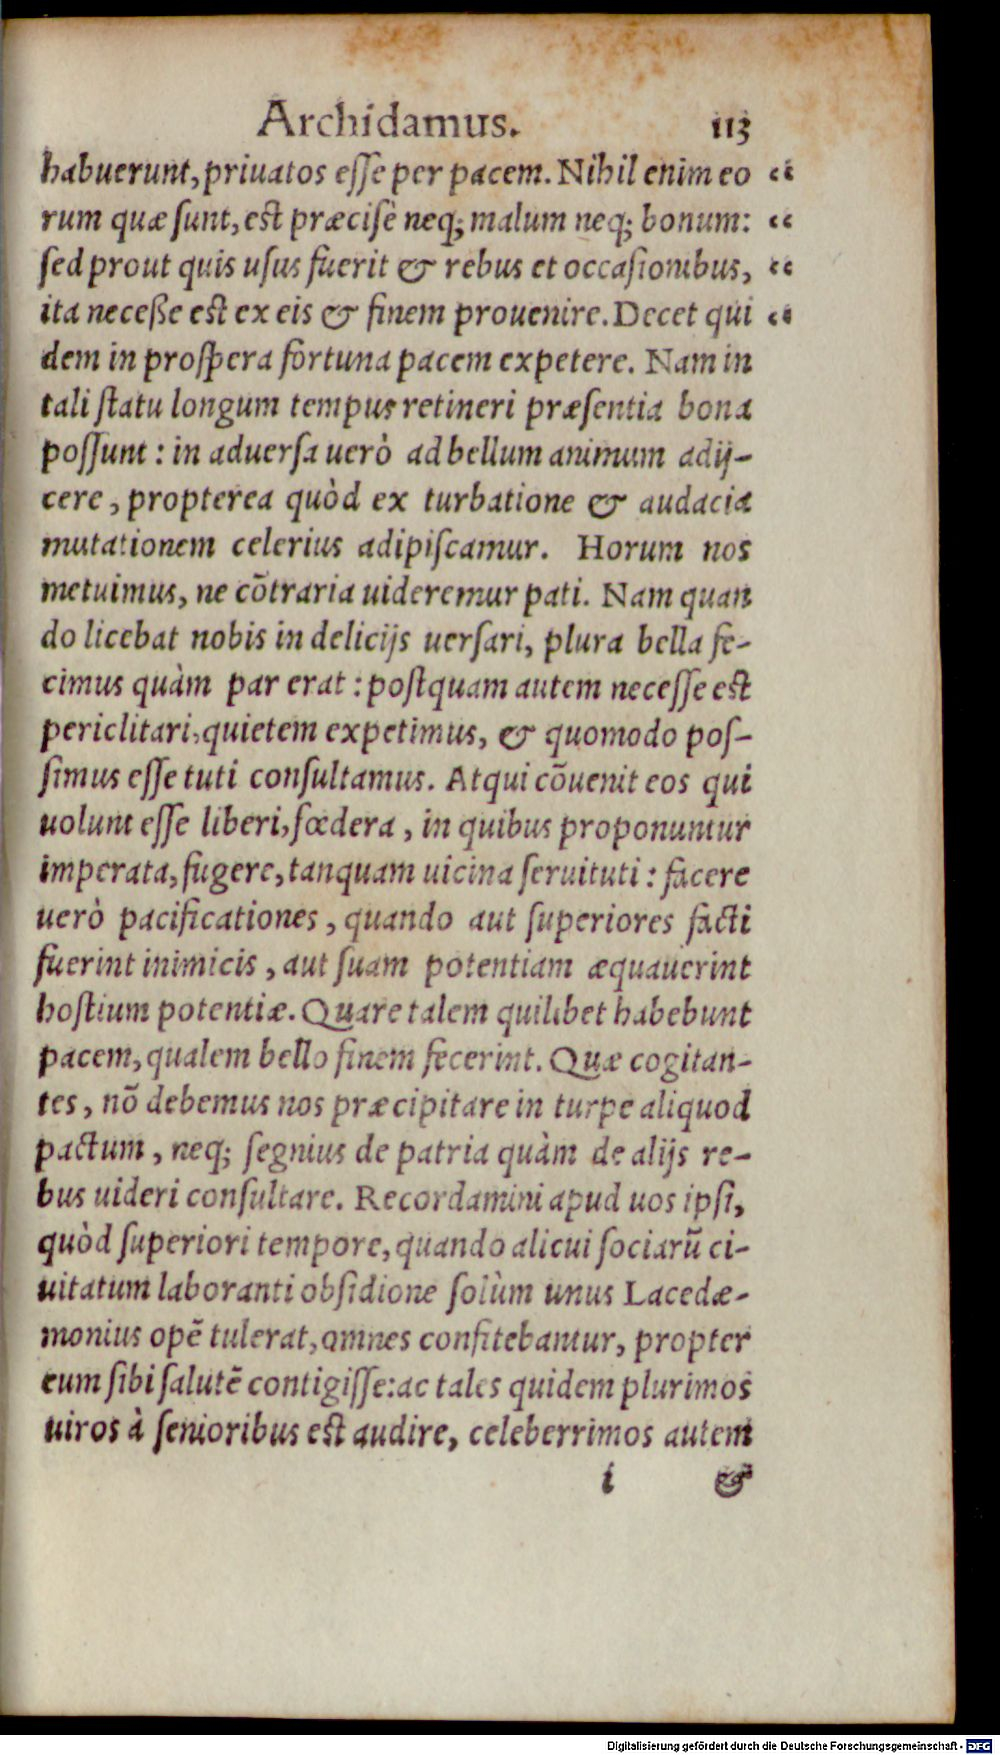 Archidamus. 113
habuerunt, priuatos eſſe per pacem. Nihil enim eo “
rum quæ ſunt, est præciſè neq; malum neq; bonum: “
ſed prout quis uſus fuerit & rebus et occaſionibus, “
ita neceße est ex eis & finem prouenire. Decet qui “
dem in proſpera fortuna pacem expetere. Nam in
tali ſtatu longum tempus retineri præſentia bona
poſſunt: in aduerſa uerò ad bellum animum adij-
cere, propterea quòd ex turbatione & audacia
mutationem celerius adipiſcamur. Horum nos
metuimus, ne cõtraria uideremur pati. Nam quan
do licebat nobis in delicijs uerſari, plura bella fe-
cimus quàm par erat: poſtquam autem neceſſe est
periclitari, quietem expetimus, & quomodo poſ-
ſimus eſſe tuti conſultamus. Atqui cõuenit eos qui
uolunt eſſe liberi, fœdera, in quibus proponuntur
imperata, fugere, tanquam uicina ſeruituti: facere
uerò pacificationes, quando aut ſuperiores facti
fuerint inimicis, aut ſuam potentiam æquauerint
hoſtium potentiæ. Quare talem quilibet habebunt
pacem, qualem bello finem fecerint. Quæ cogitan-
tes, nõ debemus nos præcipitare in turpe aliquod
pactum, neq; ſegnius de patria quàm de alijs re-
bus uideri conſultare. Recordamini apud uos ipſi,
quòd ſuperiori tempore, quando alicui ſociarũ ci-
uitatum laboranti obſidione ſolùm unus Lacedæ-
monius opẽ tulerat, omnes confitebantur, propter
eum ſibi ſalutẽ contigiſſe: ac tales quidem plurimos
uiros à ſenioribus est audire, celeberrimos autem
i &
Digitalisierung gefördert durch die Deutsche Forschungsgemeinschaft - DFG